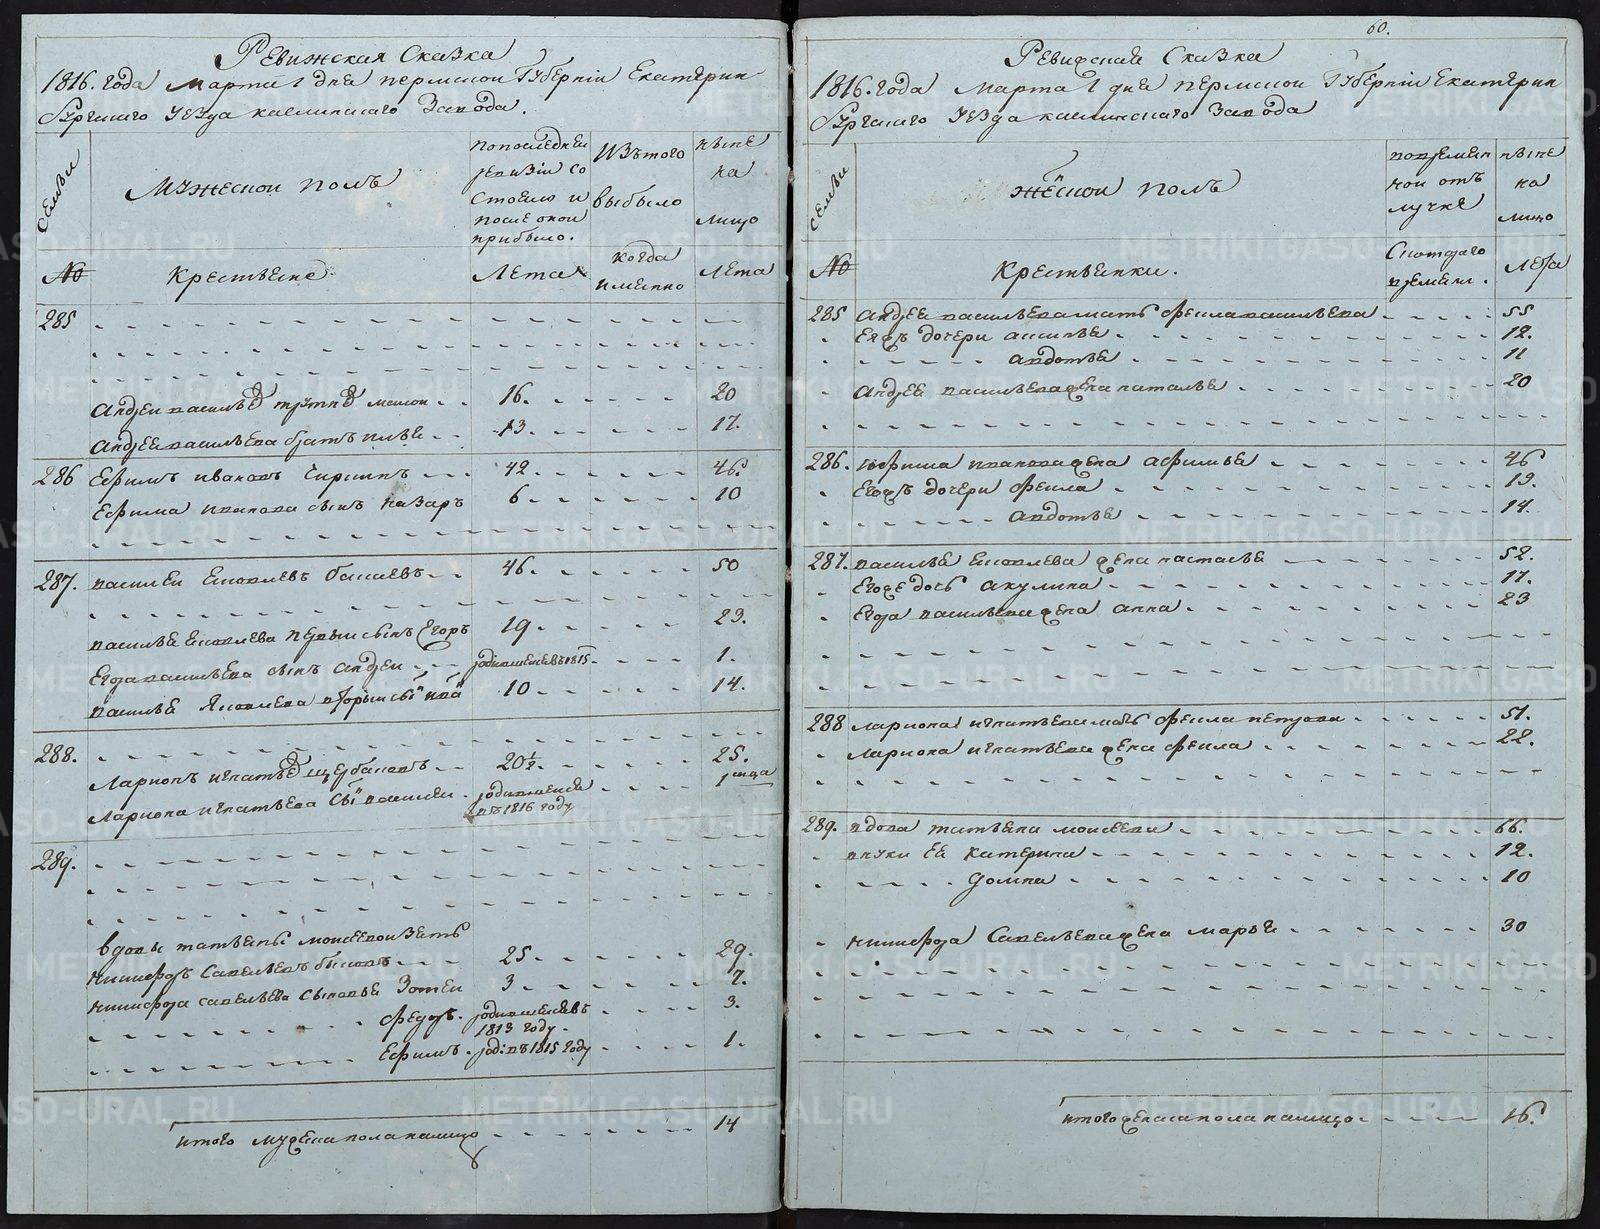 Ревижская Сказка
1816. года Марта 1 дня пермской Губерніи Екатерин
бургскаго Уезда каслинскаго Завода.
Семьи
Мужескои полъ
попоследнеи
ревизіи со
стояло и
после онои
прибыло.
Изътого
выбыло
ныне
на
лицо
№
Крестьяне
Лета
когда
имянно
Лета
285
Андреи васильевъ трутневъ меншои 16. 20
Андрея васильева братъ илья 13. 17.
286 Ефимъ ивановъ Чиркинъ 42. 46
Ефима иванова сынъ назаръ 6. 10
287. василеи Яковлевъ 46. 50
василья Яковлева первыи сынъ Егоръ 19. 23.
Егора васильева сынъ Андреи родившеися въ 1815 1.
василья Яковлева вторыи сынъ 10 14.
288.
Ларионъ игнатьевъ щербаковъ 20½. 25.
Лариона игнатьева сынъ василеи родившеися 1 мца
въ 1816 году
289.
вдовы татьяны моисеевои Зять
никифоръ Савельевъ быковъ 25. 29.
никифора савельева сыновья Зотеи 3 7.
Федоръ. родившеися въ 3.
1813 году.
Ефимъ. род: въ 1815 году 1.
итого мужеска пола налицо 14
60.
Ревижская Сказка
1816. года Марта 1 дня пермской Губерніи Екатерин
бургскаго Уезда каслинскаго Завода
Семьи
жёнскои полъ
вовремян
нои отъ
лучке
ныне
на
лицо
№
Крестьянки.
Скотораго
времени.
Лета
285 Андрея васильева мать Фекла васильева 55
Еяжъ дочери 12.
авдотья 11
Андрея васильева жена наталья 20
286. Ефима иванова жена афимья 46
Егожъ дочери Фекла 19.
авдотья 14.
287. василья Яковлева жена настасья 52.
Егоже дочь акулина 17.
Егора васильева жена анна 23
288 Лариона игнатьева мать Фекла петрова 51.
Лариона игнатьева жена Фекла 22.
289. вдова татьяна моисеева 66.
внуки Ея катерина 12.
домна 10
никифора Савельева жена марья 30
итого женска пола налицо 16.
METRIKI.GASO-URAL.RU